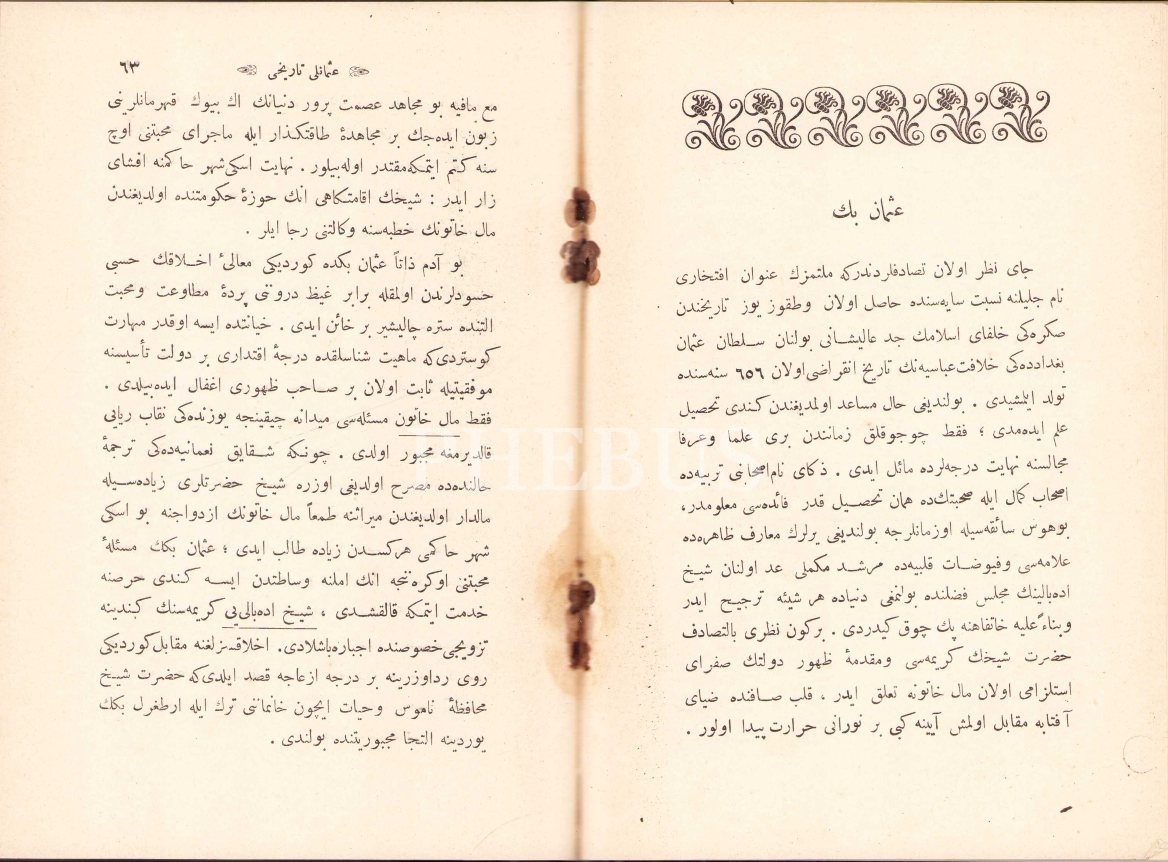 عثمان بك
جای نظر اولان تصادفلردندركه ملتمزك عنوان افتخاری
نام جلیلنه نسبت سایه‌سنده حاصل اولان وطقوز یوز تاریخندن
صكره‌كی خلفای اسلامك جد عالیشانی بولنان سلطان عثمان
بغدادده‌كی خلافت عباسیه‌نك تاریخ انقراضی اولان ٦٥٦ سنه‌سنده
تولد ایلمشیدی . بولندیغی حال مساعد اولمدیغندن كندی تحصیل
علم ایده‌مدی ؛ فقط چوجوقلق زمانندن بری علما وعرفا
مجالسنه نهایت درجه‌لرده مائل ایدی . ذكای نام اصحابنی تربیه‌ده
اصحاب كمال ایله صحبتك‌ده همان تحصیل قدر فائده‌سی معلومدر،
بوهوس سائقه‌سیله اوزمانلرجه بولندیغی یرلرك معارف ظاهره‌ده
علامه‌سی وفیوضات قلبیه‌ده مرشد مكملی عد اولنان شیخ
اده‌بالینك مجلس فضلنده بولنمغی دنیاده هر شیئه ترجیح ایدر
وبناءً علیه خانقاهنه پك چوق كیدردی . بركون نظری بالتصادف
حضرت شیخك كریمه‌سی ومقدمهٔ ظهور دولتك صفرای
استلزامی اولان مال خاتونه تعلق ایدر ، قلب صافنده ضیای
آفتابه مقابل اولمش آیینه كبی بر نورانی حرارت پیدا اولور .
عثمانلی تاریخی
٦٣
مع مافیه بو مجاهد عصمت پرور دنیانك اك بیوك قهرمانلرینی
زبون ایده‌جك بر مجاهدهٔ طاقتكذار ایله ماجرای محبتنی اوچ
سنه كتم ایتمكه مقتدر اوله‌بیلور . نهایت اسكی شهر حاكمنه افشای
زار ایدر : شیخك اقامتكاهی انك حوزهٔ حكومتنده اولدیغندن
مال خاتونك خطبه‌سنه وكالتنی رجا ایلر .
بو آدم ذاتاً عثمان بكده كوردیكی معالیٔ اخلاقك حسبی
حسودلرندن اولمقله برابر غیظ دروننی پردهٔ مطاوعت ومحبت
التنده ستره چالیشیر بر خائن ایدی . خیانتده ایسه اوقدر مهارت
كوستردی‌كه ماهیت شناسلقده درجهٔ اقتداری بر دولت تأسیسنه
موفقیتیله ثابت اولان بر صاحب ظهوری اغفال ایده‌بیلدی .
فقط مال خاتون مسئله‌سی میدانه چیقینجه یوزنده‌كی نقاب ریایی
قالدیرمغه مجبور اولدی . چونكه شقایق نعمانیه‌ده‌كی ترجمهٔ
حالنده‌ده مصرح اولدیغی اوزره شیخ حضرتلری زیاده‌سیله
مالدار اولدیغندن میراثنه طمعاً مال خاتونك ازدواجنه بو اسكی
شهر حاكمی هركسدن زیاده طالب ایدی ؛ عثمان بكك مسئلهٔ
محبتنی اوكرنجه انك املنه وساطتدن ایسه كندی حرصنه
خدمت ایتمكه قالقشدی ، شیخ اده‌بالی‌یی كریمه‌سنك كندینه
تزویجی خصوصنده اجباره باشلادی. اخلاقسزلغنه مقابل كوردیكی
روی رد اوزرینه بر درجه ازعاجه قصد ایلدی‌كه حضرت شیخ
محافظهٔ ناموس وحیات ایچون خانماننی ترك ایله ارطغرل بكك
یوردینه التجا مجبوریتنده بولندی .
PHEBUS